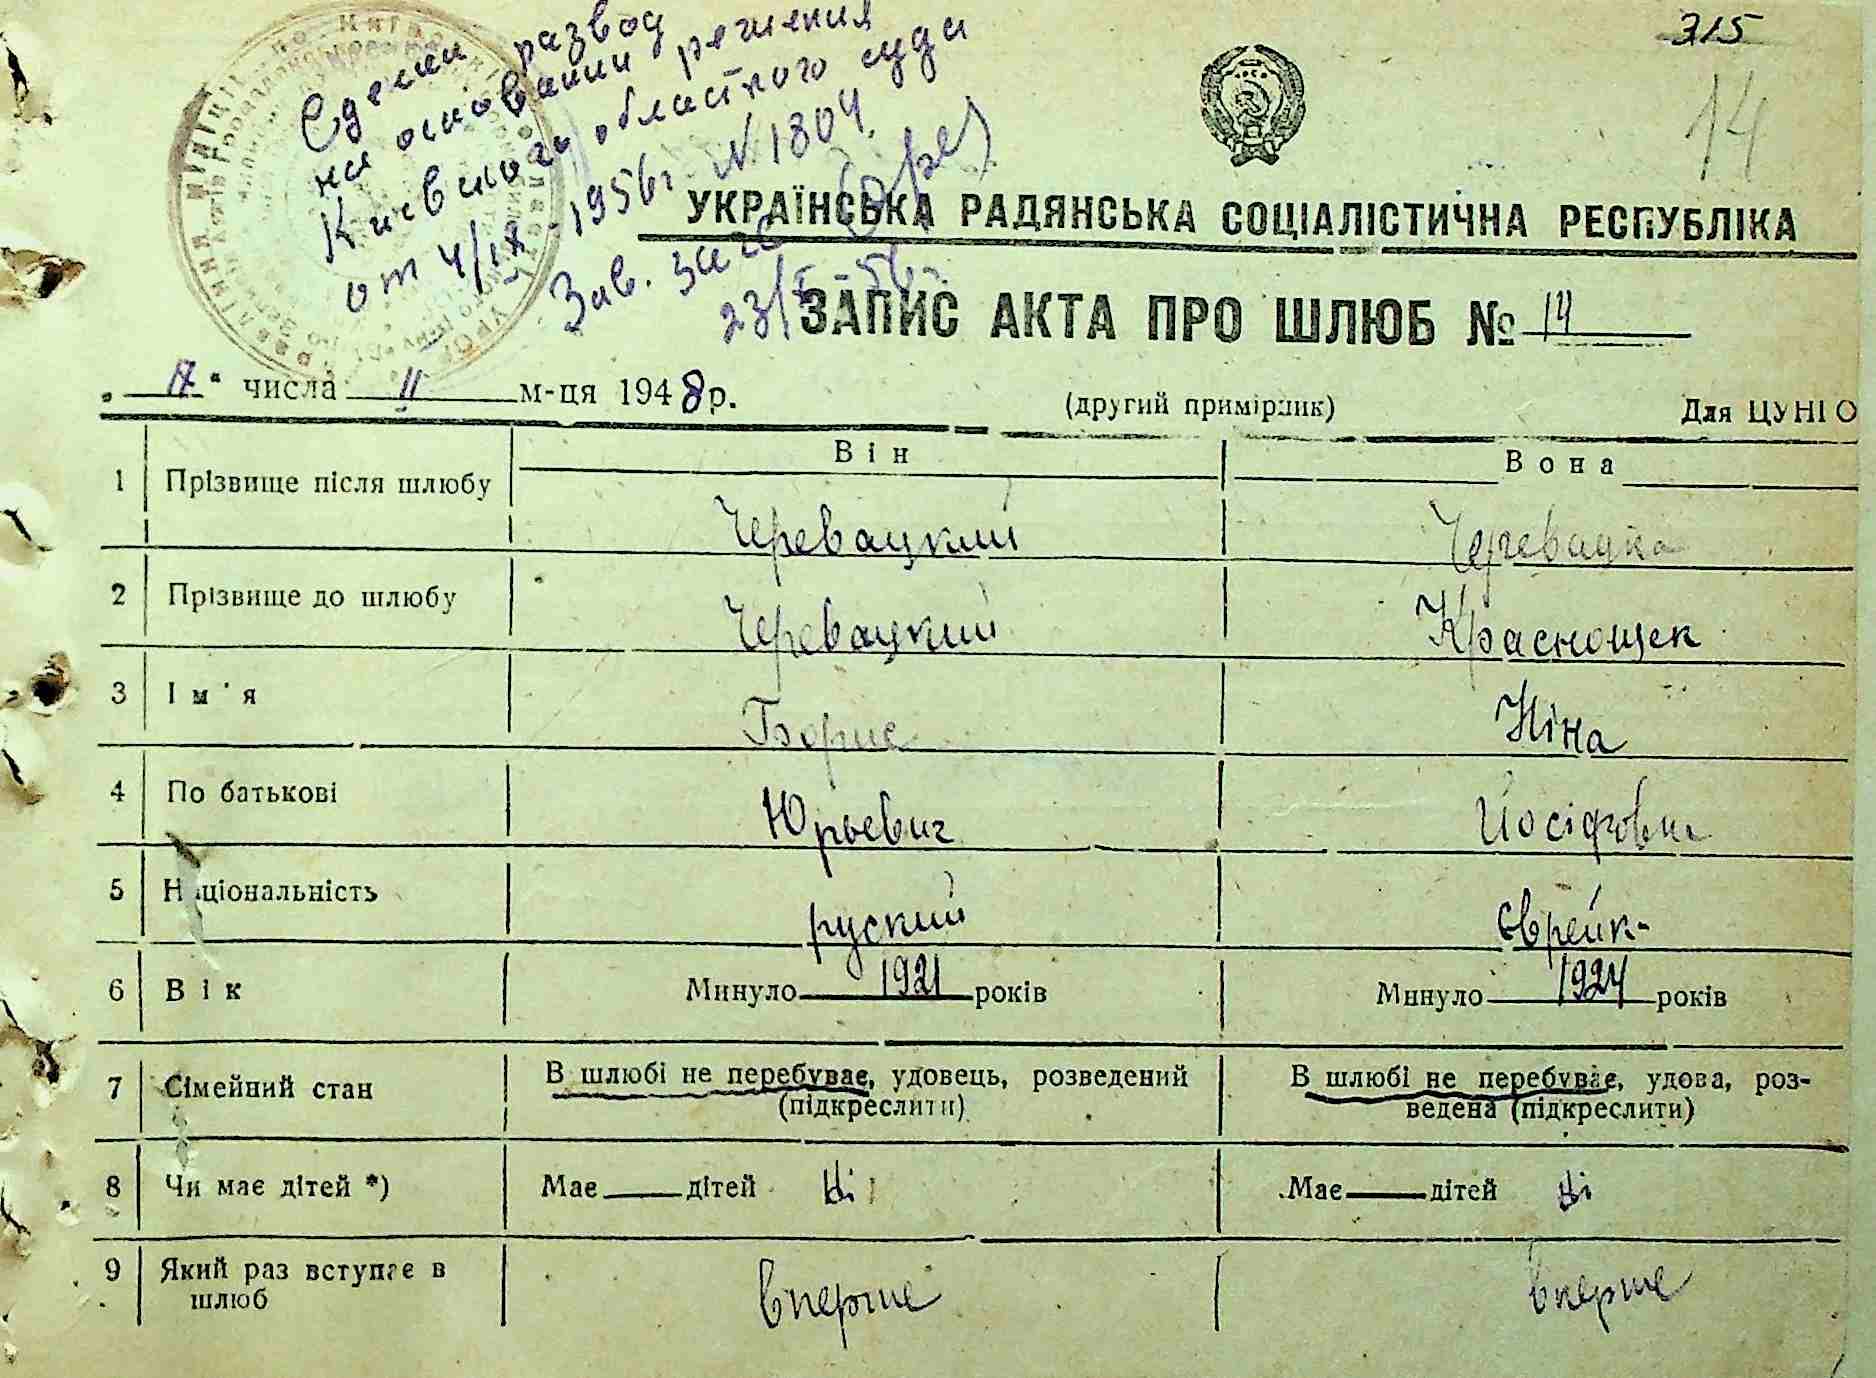 315
14
Сделан развод
на основании решения
Киевского областного суда
от 4/IX 1956г. N 1804.
Зав. загс
23/X-56г.
УКРАЇНСЬКА РАДЯНСЬКА СОЦІАЛІСТИЧНА РЕСПУБЛІКА
ЗАПИС АКТА ПРО ШЛЮБ № 14
„17“ числа II м-ця 1948 р. (другий примірник) Для ЦУНГО
Він Вона
1 Прізвище після шлюбу Черевацкий Черевацка
2 Прізвище до шлюбу Черевацкий Краснощек
3 Ім'я Борис Ніна
4 По батькові Юрьевич Йосіфовн
5 Національність руский єврейк-
6 Вік Минуло 1921 років Минуло 1924 років
7 Сімейний стан В шлюбі не перебуває, удовець, розведений (підкреслити) В шлюбі не перебуває, удова, роз-
ведена (підкреслити)
8 Чи має дітей *) Має дітей ні Має дітей ні
9 Який раз вступає в
шлюб вперше вперше